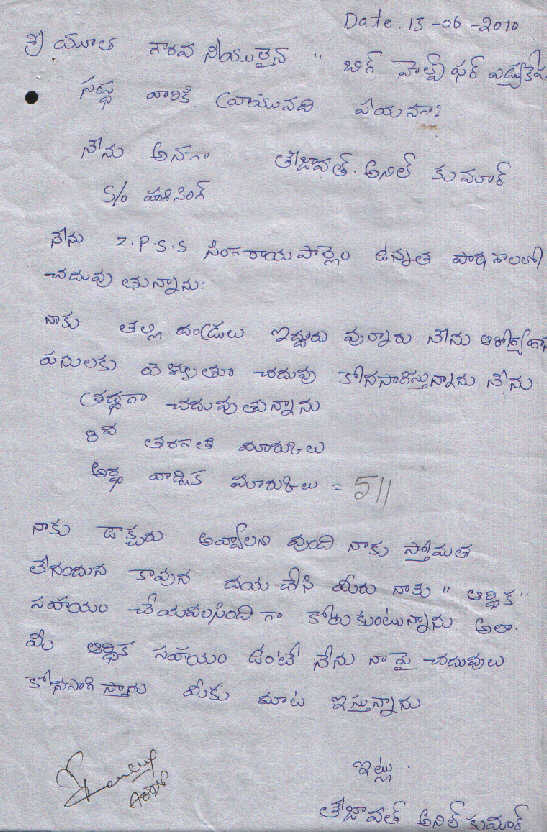 Date. 13-06-2010
శ్రీ యూత గౌరవ నీయులైన " బిగ్ హెల్ప్ ఫర్ ఎడ్యుకేషన్
సంస్థ వారికి వ్రాయునది ఏమనగా:
నేను అనగా తేజావత్. అనిల్ కుమార్
S/o హరిసింగ్
నేను Z.P.S.S సింగరాయపాల్లెం ఉన్నత పాఠశాలలో
చదువు తున్నాను:
నాకు తల్లి దండ్రులు ఇద్దరు వున్నారు నేను
పనులకు వెళ్ళుతూ చదువు కోనసాగిస్తున్నాను నేను
శ్రద్ధగా చదువుతున్నాను
8వ తరగతి మారుకులు
అర్థ వార్షిక మారుకులు = 511
నాకు డాక్టరు అవ్వాలని వుంది నాకు స్తోమత
లేనందున కావున దయ చేసి మీరు నాకు " ఆర్థిక "
సహయం చేయవలసింది గా కోరు కుంటున్నాను అలా.
మీ ఆర్థిక సహయం ఉంటే నేను నా పై చదువులు
కోనసాగి స్తాను మీకు మాట ఇస్తున్నాను
ఇట్లు.
తేజావత్ అనిల్ కుమార్